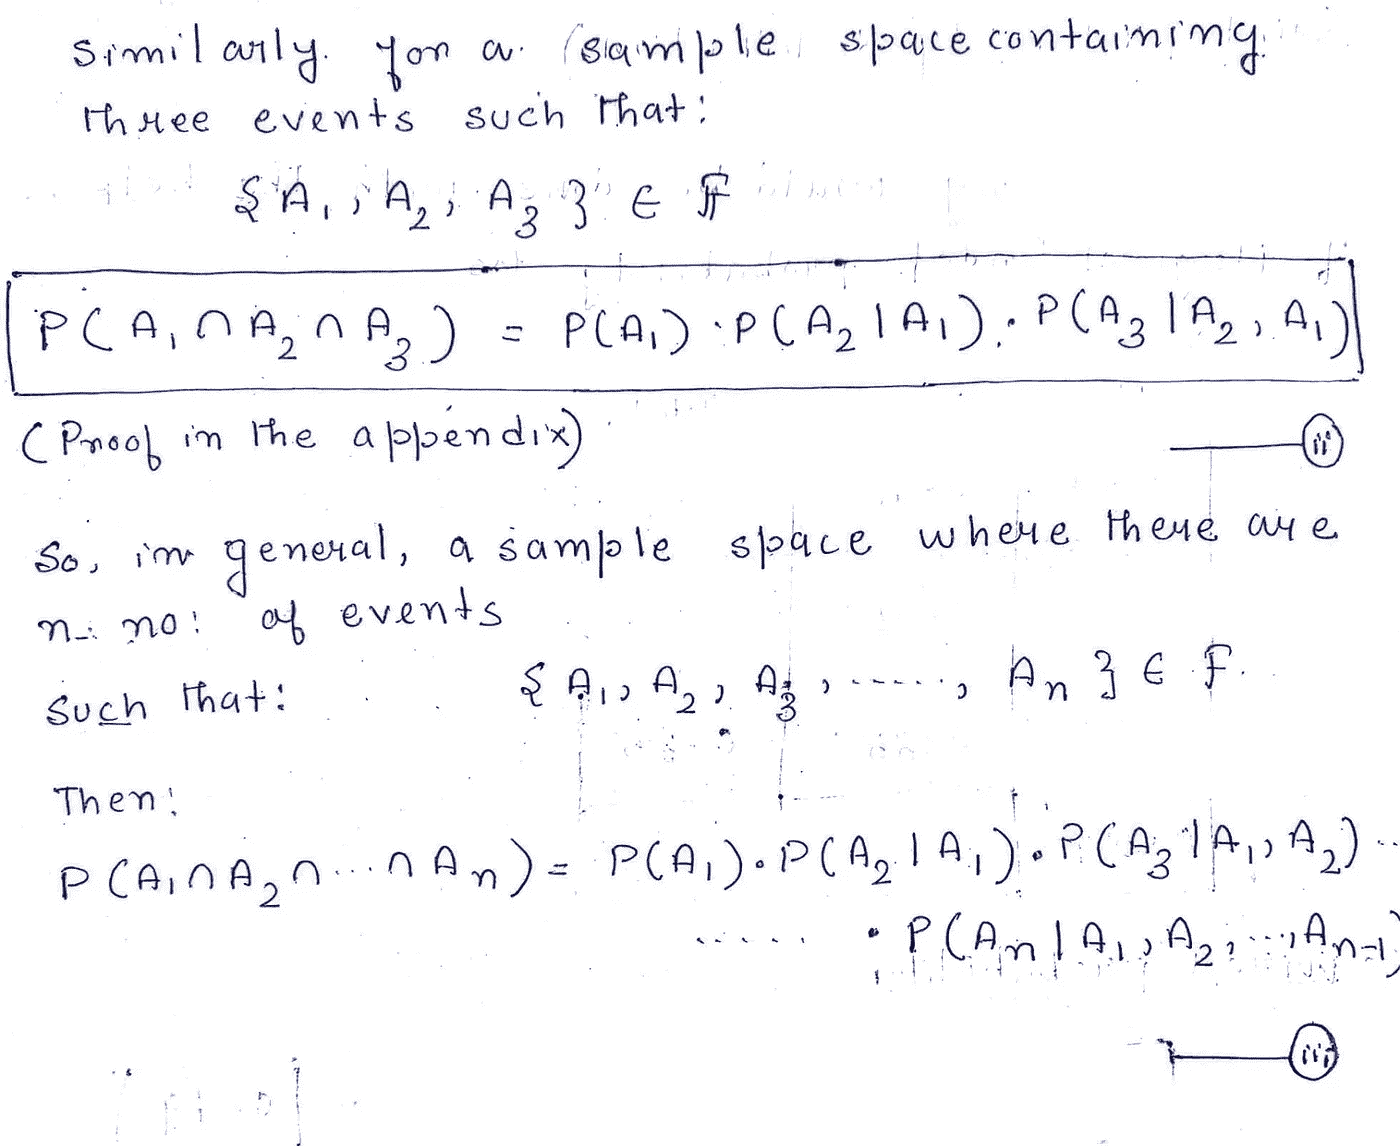 Similarly for a sample space containing
three events such that:
{A₁, A₂, A₃} ∈ F
P(A₁ ∩ A₂ ∩ A₃) = P(A₁) · P(A₂ | A₁) · P(A₃ | A₂, A₁)
(Proof in the appendix)
(ii)
So, in general, a sample space where there are
n: no: of events
Such that: {A₁, A₂, A₃, ....., An} ∈ F.
Then:
P(A₁ ∩ A₂ ∩ ... ∩ An) = P(A₁) · P(A₂ | A₁) · P(A₃ | A₁, A₂) ..
..... · P(An | A₁, A₂, ..., An-1)
(iii)